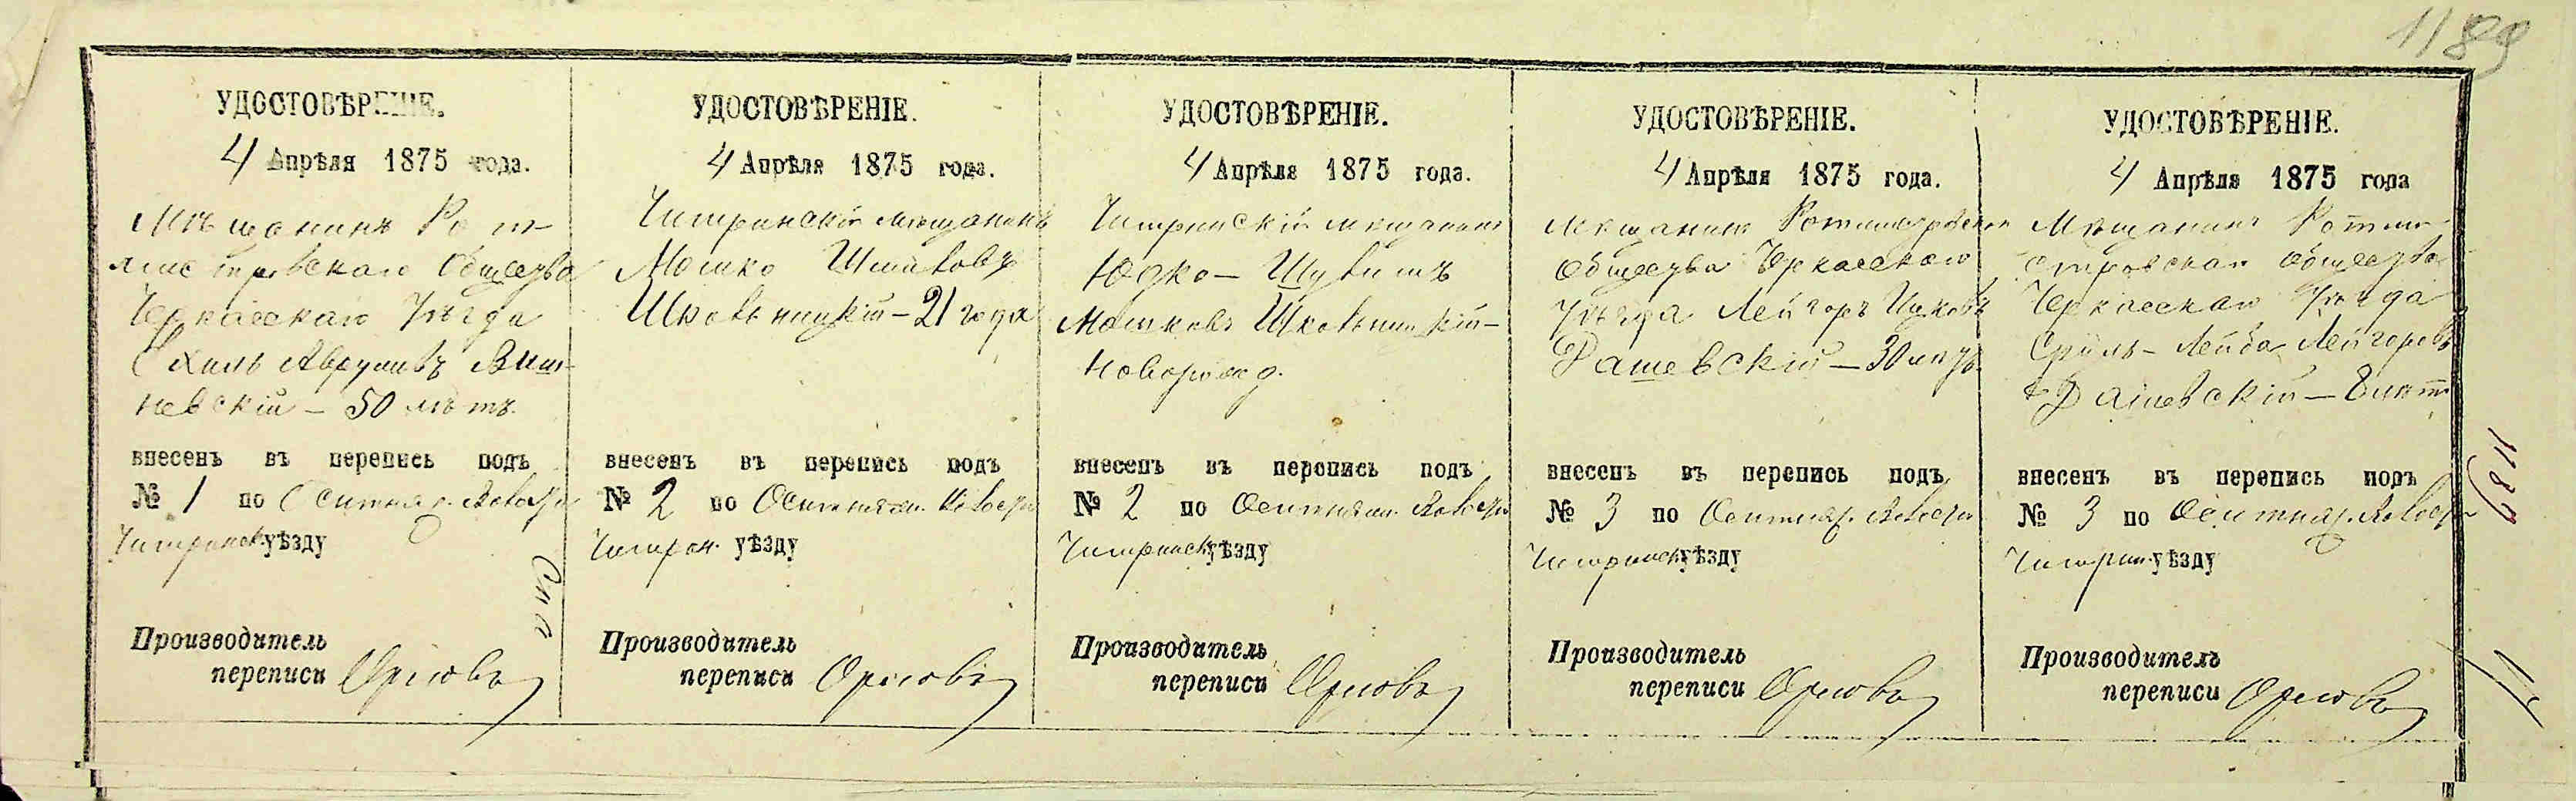 1189
УДОСТОВѢРЕНІЕ.
4 Апрѣля 1875 года.
Мѣщанинъ Рот-
мистровскаго Общества
Черкасскаго Уѣзда
Авруловъ Виш-
невскій – 50 лѣтъ.
внесенъ въ перепись подъ
№ 1 по
Чигринск. уѣзду
Производитель
переписи Орловъ
УДОСТОВѢРЕНІЕ.
4 Апрѣля 1875 года.
Чигринскій мѣщанинъ
Мошко
Шковьницкій – 21 года
внесенъ въ перепись подъ
№ 2 по
Чигрин. уѣзду
Производитель
переписи Орловъ
УДОСТОВѢРЕНІЕ.
4 Апрѣля 1875 года.
Чигринскій мѣщанинъ
Юдко –
Мошковъ Шковьницкій –
Новорожд.
внесенъ въ перепись подъ
№ 2 по
Чигринск. уѣзду
Производитель
переписи Орловъ
УДОСТОВѢРЕНІЕ.
4 Апрѣля 1875 года.
Мѣщанинъ Ротмистровскаго
Общества Черкасскаго
Уѣзда Лейзоръ Ицковъ
Рашевскій – 30 лѣтъ
внесенъ въ перепись подъ
№ 3 по
Чигринск. уѣзду
Производитель
переписи Орловъ
УДОСТОВѢРЕНІЕ.
4 Апрѣля 1875 года
Мѣщанинъ Ротми-
стровскаго Общества
Черкасскаго Уѣзда
Сруль-Лейба Лейзоровъ
Рашевскій – 8 лѣтъ
внесенъ въ перепись подъ
№ 3 по
Чигрин. уѣзду
Производитель
переписи Орловъ
1189